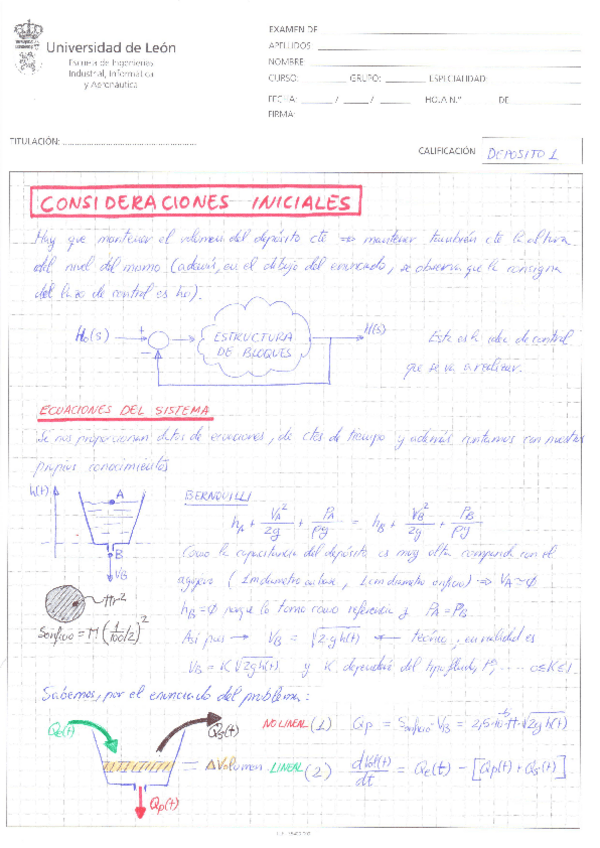 Universidad de León
Escuela de Ingenierías
Industrial, Informática
y Aeronáutica
EXAMEN DE
APELLIDOS
NOMBRE
CURSO: GRUPO: ESPECIALIDAD
FECHA: / / HOJA N.º DE
FIRMA:
TITULACIÓN:
CALIFICACIÓN DEPOSITO 1
CONSIDERACIONES INICIALES
Hay que mantener el volumen del depósito cte => mantener también cte la altura
del nivel del mismo (además, en el dibujo del enunciado, se observa que la consigna
del lazo de control es ho).
Ho(s) + − ESTRUCTURA DE BLOQUES H(s)
Esta es la idea de control
que se va a realizar.
ECUACIONES DEL SISTEMA
Se nos proporcionan datos de ecuaciones, de ctes de tiempo y además contamos con nuestros
propios conocimientos
h(t) A B VB
BERNOUILLI
hA + VA²/2g + PA/ρg = hB + VB²/2g + PB/ρg
Como la capacitancia del depósito es muy alta comparada con el
agujero (1m diametro cuba, 1cm diametro orificio) => VA≈Ø
πr²
Sorificio = π(1/100/2)²
hB=Ø porque lo tomo como referencia y PA=PB
Así pues → VB = √2·g·h(t) ← teórica, en realidad es
VB = K√2gh(t) y K dependerá del tipo fluido, Pº, .... 0≤K≤1.
Sabemos, por el enunciado del problema:
Qe(t) Qs(t) NO LINEAL (1) Qp = Sorificio·VB = 2,5·10⁻⁵·π·√2gh(t)
= ΔVolumen LINEAL (2) dVol(t)/dt = Qe(t) − [Qp(t) + Qs(t)]
Qp(t)